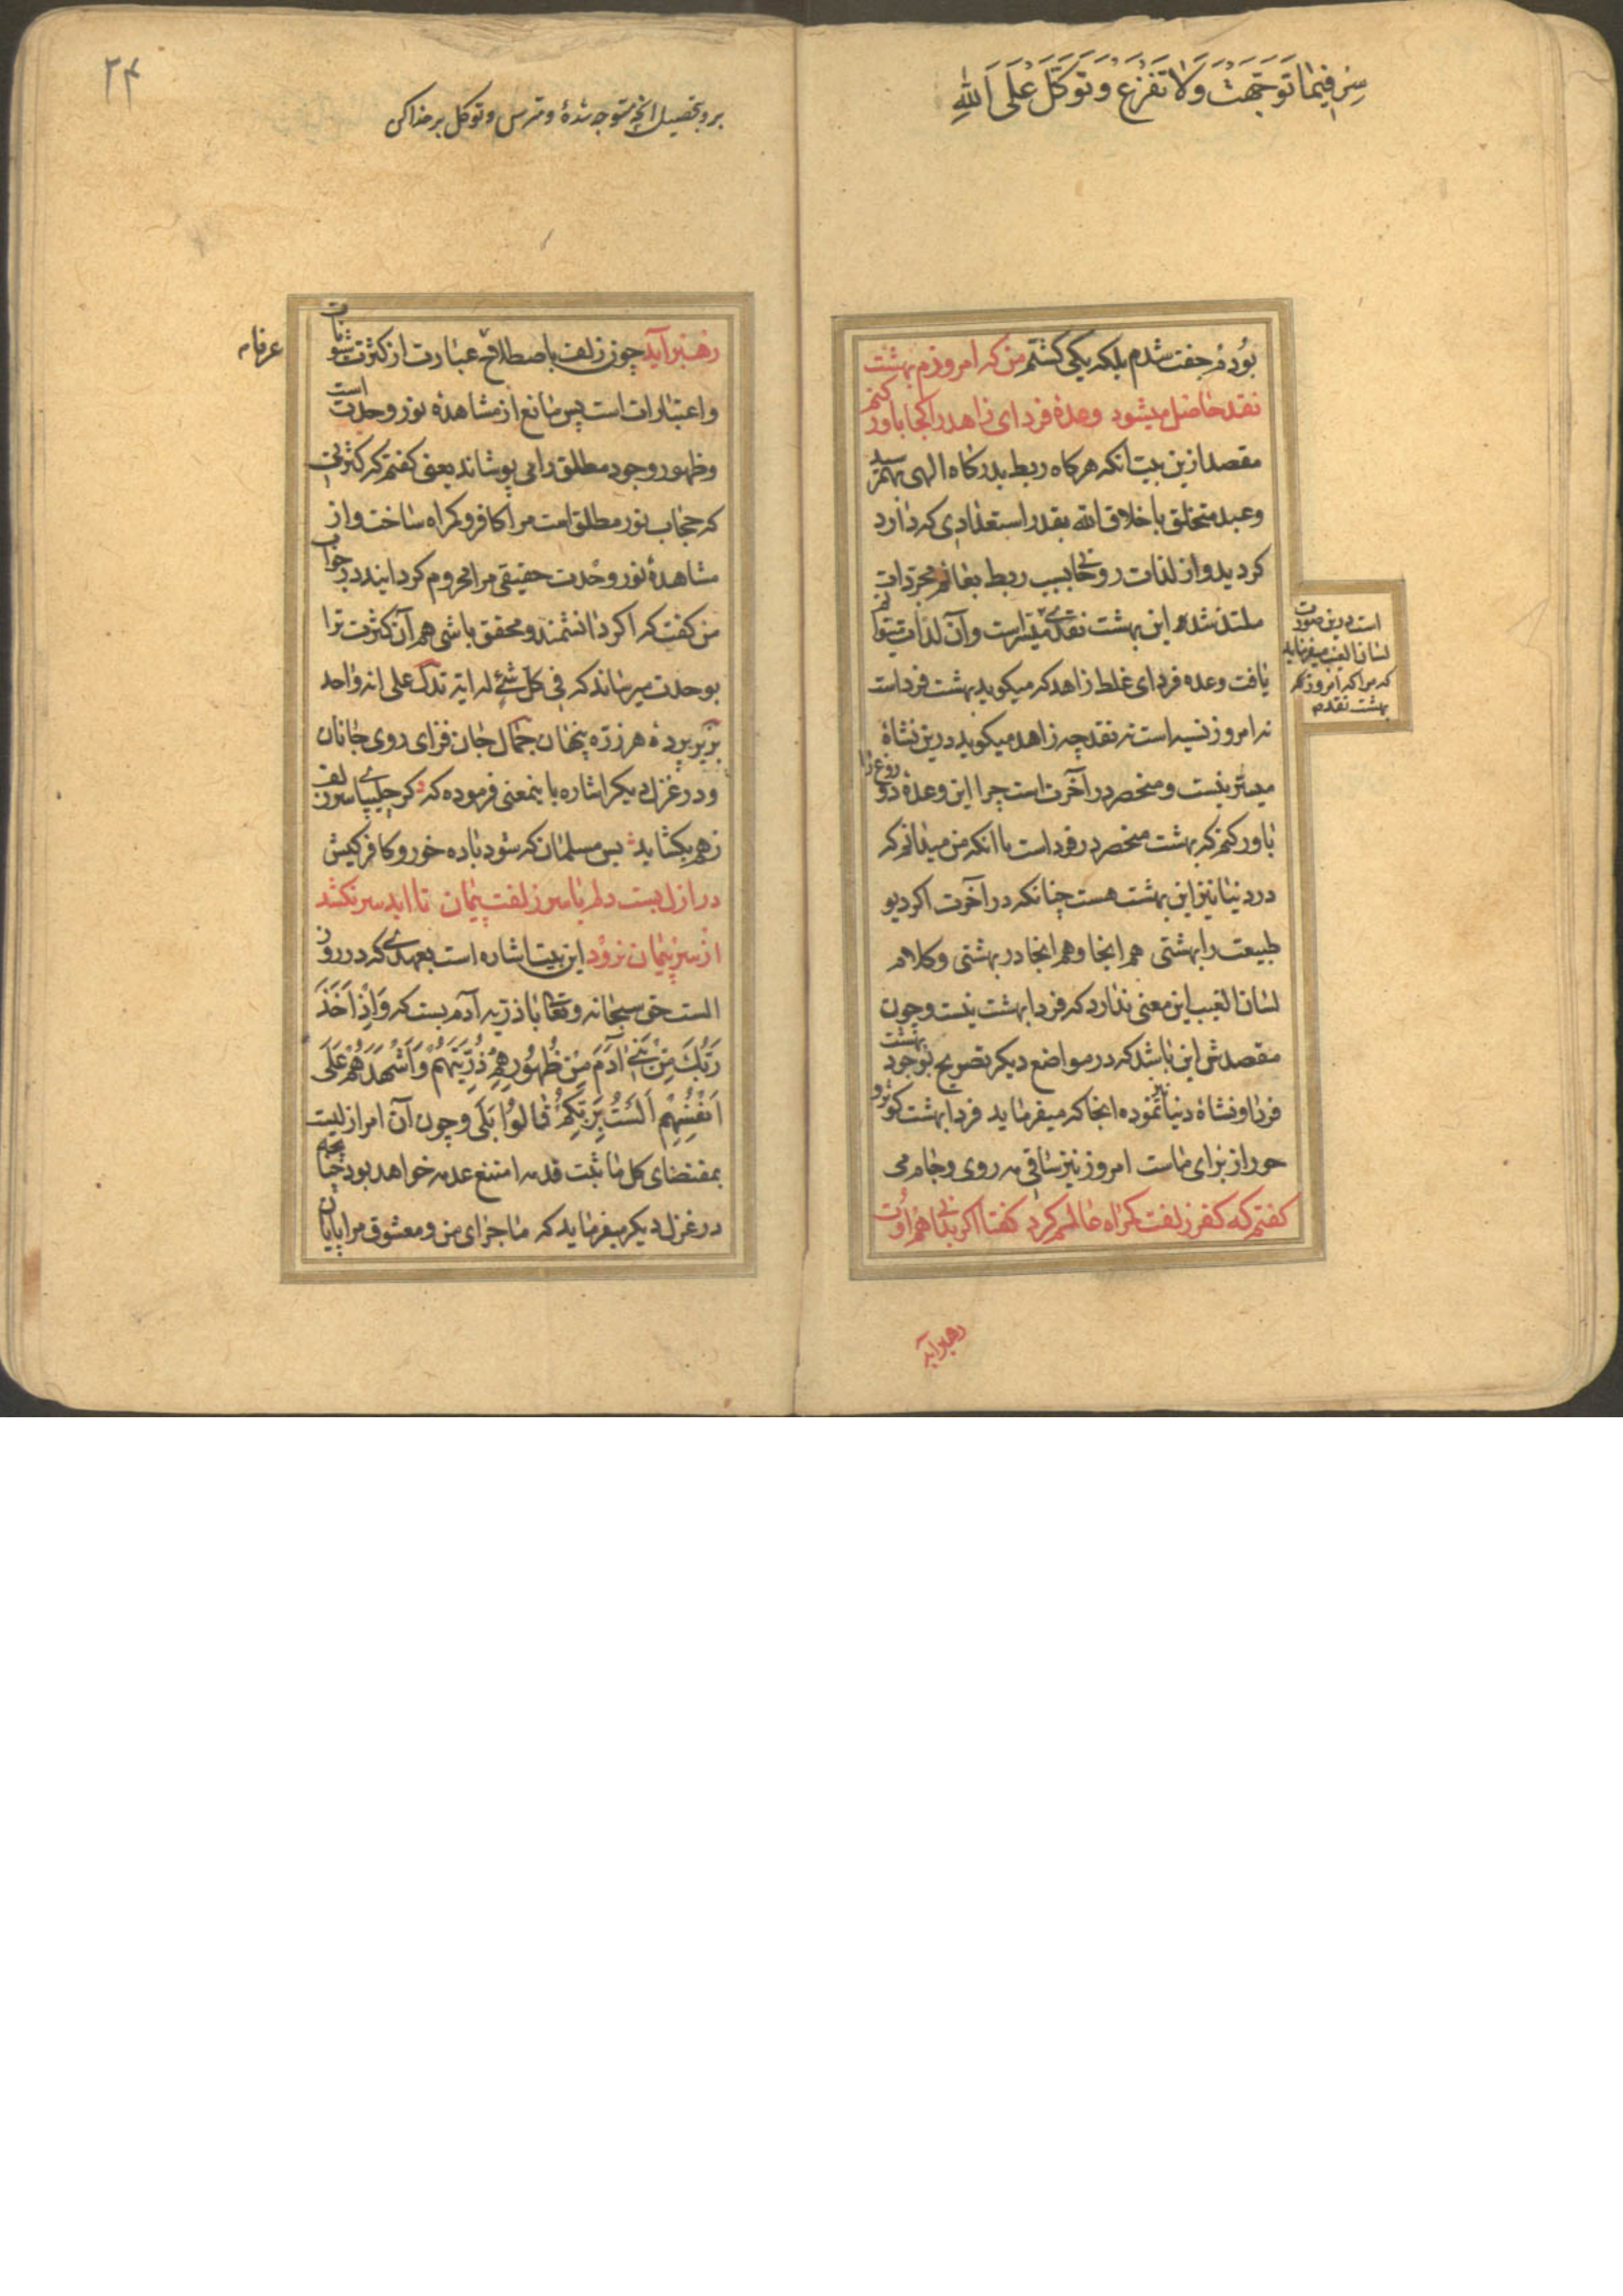 سِرْ فِیمٰا تَوَجَّهْتَ وَلاٰ تَفْزَعْ وَتَوَکَّلْ عَلَی اللهِ
بودم جفت شدم بلکه یکی کشتم من که امروزم بهشت
نقد حاصل میشود وعدهٔ فردای زاهد را کجا باور کنم
مقصد ازین بیت آنکه هرکاه ربط بدرکاه الهی بهم رسید
وعبد متخلق باخلاق الله بقدر استعدادی که دارد
کردید واز لذات روحانی بسبب ربط بعالم مجردات
ملتذ شد این بهشت نقدی میسر است وآن لذات میتوانم
یافت وعده فردای غلط زاهد که میکوید بهشت فرداست
نه امروز نسیه است نه نقد چه زاهد میکوید درین نشاهٔ
میسر نیست ومنحصر در آخرت است چرا این وعدهٔ دروغ را
باور کنم که بهشت منحصر در فرداست با آنکه من میدانم که
در دنیا نیز این بهشت هست چنانکه در آخرت اکر دیو
طبیعت را بهشتی هم اینجا وهم انجا در بهشتی وکلام
لسان الغیب این معنی ندارد که فردا بهشت نیست وچون
مقصدش این باشد که در مواضع دیکر تصریح بوجود بهشت
فردا ونشاهٔ دنیا نیز نموده انجا که میفرماید فردا بهشت کوثر و
حور از برای ماست امروز نیز ساقی مه روی وجام می
کفتم که کفر زلفت کمراه عالمم کرد کفتا اکر بدانی هم اوت
رهبر آید
است درین صورت
لسان الغیب میفرماید
که مرا که امروز که
بهشت نقدم
۲۴
برو بتحصیل آنچه متوجه شدهٔ ومترس وتوکل بر خدا کن
رهبر آید چون زلف باصطلاح عرفا عبارت از کثرت شئونات
عرفا م
واعتبارات است پس مانع از مشاهدهٔ نور وحدت است
وظهور وجود مطلق را می پوشاند یعنی کفتم که کثرتی
که حجاب نور مطلق است مرا کافر وکمراه ساخت واز
مشاهدهٔ نور وحدت حقیقی مرا محروم کردانید در جواب
من کفت که اکر دانشمند ومحقق باشی هم آن کثرت ترا
بوحدت میرساند که فی کل شئ له ایة تدل علی انه واحد
بزیر پردهٔ هر ذره پنهان جمال جان فزای روی جانان
ودر غزل دیکر اشاره باینمعنی فرموده که کر چلیپای سر زلف
زهم بکشاید بس مسلمان که شود باده خور وکافر کیش
در ازل بست دلم با سر زلفت پیمان تا ابد سر نکشد
از سر پیمان نرود این بیت اشاره است بعهدی که در روز
الست حق سبحانه وتعالی با ذریه آدم بست که وَاِذْ اَخَذَ
رَبُّكَ مِنْ بَنٖی اٰدَمَ مِنْ ظُهُورِهِمْ ذُرِّیَّتَهُمْ وَاَشْهَدَهُمْ عَلٰی
اَنْفُسِهِمْ اَلَسْتُ بِرَبِّکُمْ قٰالُوا بَلٰی وچون آن امر ازلیست
بمقتضای کل ما ثبت قدمه امتنع عدمه خواهد بود چنانچه
در غزل دیکر میفرماید که ماجرای من ومعشوق مرا پایان